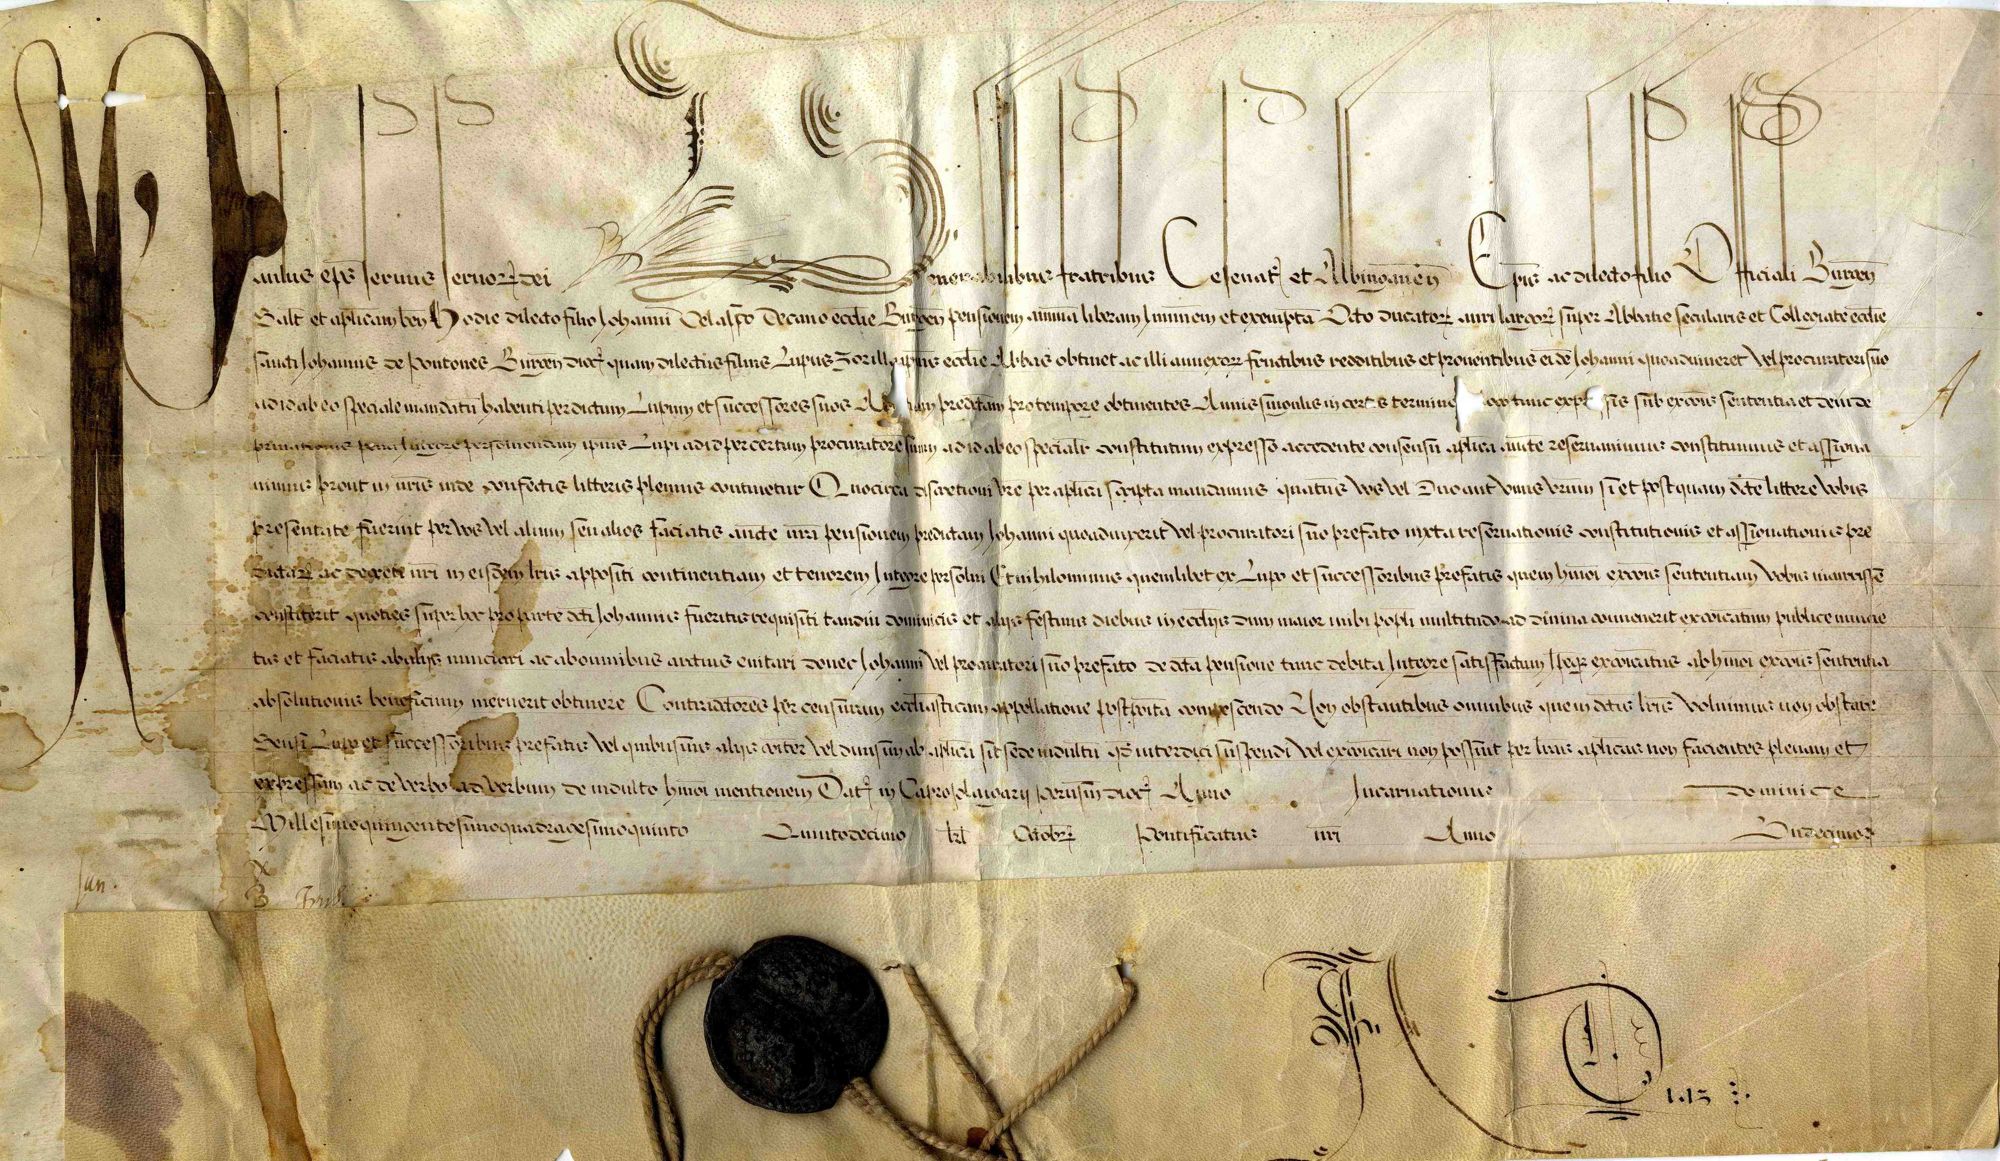 Paulus eps servus servor dei Venerabilibus fratribus Cesenat et Albinganen Epis ac dilecto filio Officiali Burgen
Salt et aplicam ben Hodie dilecto filio Johanni Decano ecclie Burgen pensionem annua liberam immunem et exempta Octo ducator auri largor super Abbatie secularis et Collegiate ecclie
sancti Johannis de Pontones Burgen dioc quam dilectus filius Lupus ipius ecclie Abbas obtinet ac illi annexor fructibus redditibus et proventibus ei de Johanni quoad viveret vel procuratori suo
ad id ab eo speciale mandatu habenti per dictum Lupum et successores suos predictam pro tempore obtinentes Annis singulis in tunc sub excois sententia et deinde
privationis pena integre persolvendam ipius Lupi ad id per certum procuratore suum ad id ab eo specialr constitutum expresso accedente consensu aplica aucte reservavimus constituimus et assigna
vimus prout in nris inde confectis litteris plenius continetur Quocirca discretioni vre per aplica scripta mandamus quatinus vos vel Duo aut Unus vrum si et postquam dicte littere vobis
presentate fuerint per vos vel alium seu alios faciatis aucte nra pensionem predictam Johanni quoad vixerit vel procuratori suo prefato iuxta reservationis constitutionis et assignationis pre
dictar ac decreti nri in eisdem lris appositi continentiam et tenorem Integre persolvi Et nihilominus quemlibet ex Lupo et successoribus prefatis quem hmoi excois sententiam vobis incurrisse
constiterit quoties super hoc pro parte dicti Johannis fueritis requisiti tandiu dominicis et alijs festivis diebus in ecclijs dum maior inibi popli multitudo ad divina convenerit excoicatum publice nuncie
tis et faciatis ab alijs nunciari ac ab omnibus arctius evitari donec Johanni vel procuratori suo prefato de dicta pensione tunc debita Integre satisfactum Ipseque excoicatus ab hmoi excois sententia
absolutionis beneficium meruerit obtinere Contradictores per censuram ecclesiasticam appellatione postposita compescendo Non obstantibus omnibus que in dictis lris volumus non obstare
Seu si Lupo et successoribus prefatis vel quibusvis alijs coiter vel divisim ab aplica sit sede indultu qd interdici suspendi vel excoicari non possint per lras aplicas non facientes plenam et
expressam ac de verbo ad verbum de indulto hmoi mentionem Dat in Anno Incarnationis dominice
Millesimoquingentesimoquadragesimoquinto Quintodecimo kl Octobr Pontificatus nri Anno Undecimo
Jan.